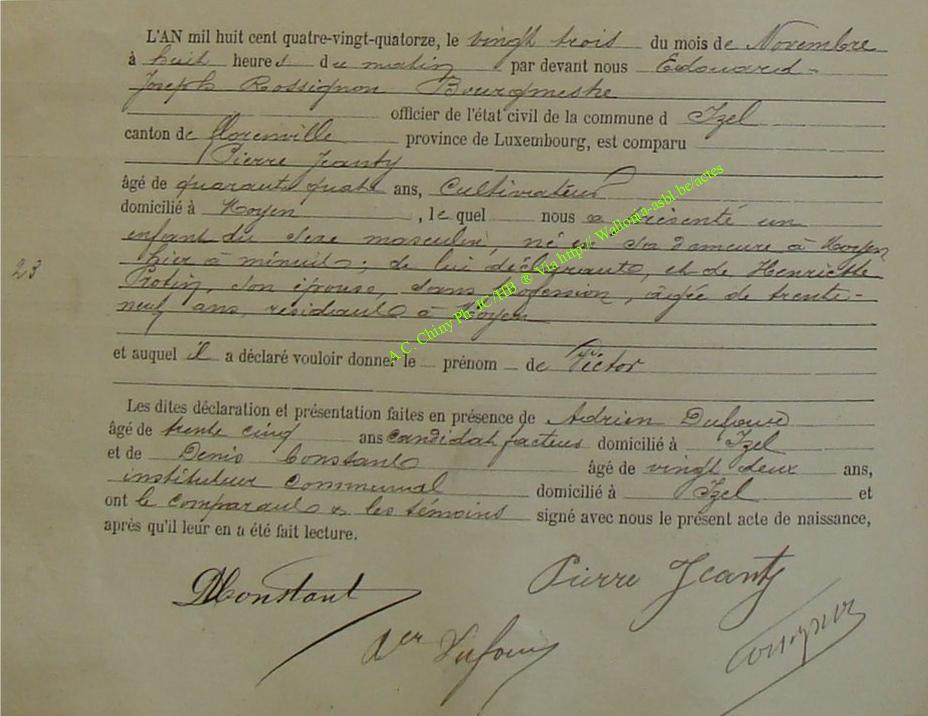 L'AN mil huit cent quatre-vingt-quatorze, le vingt trois du mois de Novembre
à huit heures du matin par devant nous Edouard-
Joseph Rossignon Bourgmestre
officier de l'état civil de la commune d Izel
canton de florenville province de Luxembourg, est comparu
Pierre Jeanty
âgé de quarante quatre ans, Cultivateur
domicilié à Moyen, le quel nous a présenté un
enfant du sexe masculin, né en sa demeure à Moyen
hier à minuit; de lui déclarant, et de Henriette
23
Protin, son épouse, sans profession, âgée de trente-
neuf ans, résidant à Moyen
A.C. Chiny Ph. JC/HB @ Via http:// Wallonia-asbl.be/actes
et auquel il a déclaré vouloir donner le prénom de Victor
Les dites déclaration et présentation faites en présence de Adrien Dufour
âgé de trente cinq ans candidat facteur domicilié à Izel
et de Denis Constant âgé de vingt deux ans,
instituteur communal domicilié à Izel et
ont le comparant & les témoins signé avec nous le présent acte de naissance,
après qu'il leur en a été fait lecture.
DConstant Pierre Jeanty
Aen Dufour